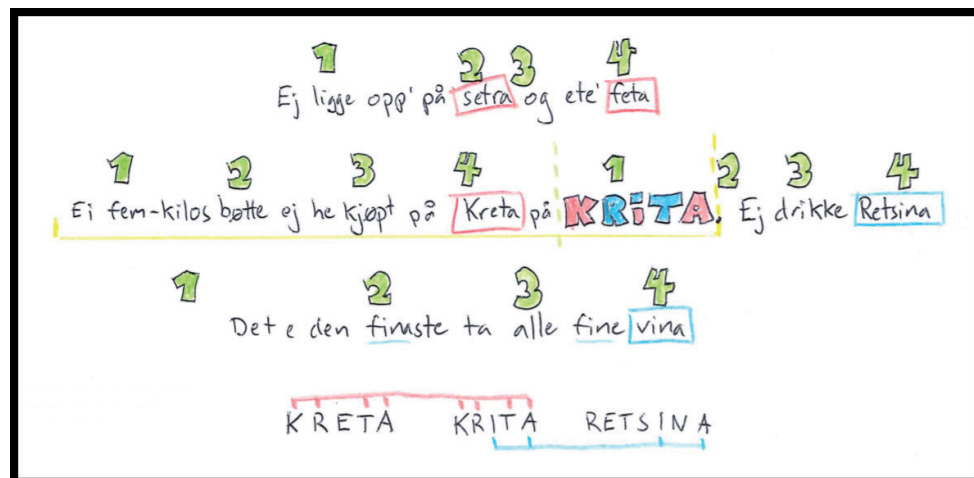 1 2 3 4
Ej ligge opp' på setra og ete' feta
1 2 3 4 1 2 3 4
Ei fem-kilos bøtte ej he kjøpt på Kreta på KRiTA. Ej drikke Retsina
1 2 3 4
Det e den finaste ta alle fine vina
KRETA KRITA RETSINA